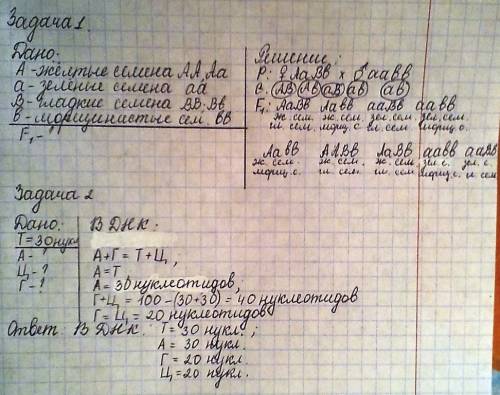 Задача 1.
Дано:
А - жёлтые семена АА, Аа
а - зелёные семена аа
В - гладкие семена ВВ, Вв
в - морщинистые сем. вв
F₁ - ?
Решение:
Р: ♀ АаВв х ♂ аавв
G: АВ Ав аВ ав ав
F₁: АаВв Аавв ааВв аавв
ж. сем. ж. сем. зел. сем. зел. сем.
гл. сем. морщ. с. гл. сем. морщ. с.
Аавв ААВв АаВв аавв ааВв
ж. сем. ж. сем. ж. сем. зел. с. зел. с.
морщ. с. гл. сем. гл. сем. морщ. с. гл. сем
Задача 2
Дано:
Т = 30 нукл
А - ?
Ц - ?
Г - ?
В ДНК:
А+Г = Т+Ц,
А = Т
А = 30 нуклеотидов,
Г+Ц = 100 - (30+30) = 40 нуклеотидов
Г = Ц = 20 нуклеотидов
Ответ: В ДНК: Т = 30 нукл.;
А = 30 нукл.
Г = 20 нукл.
Ц = 20 нукл.